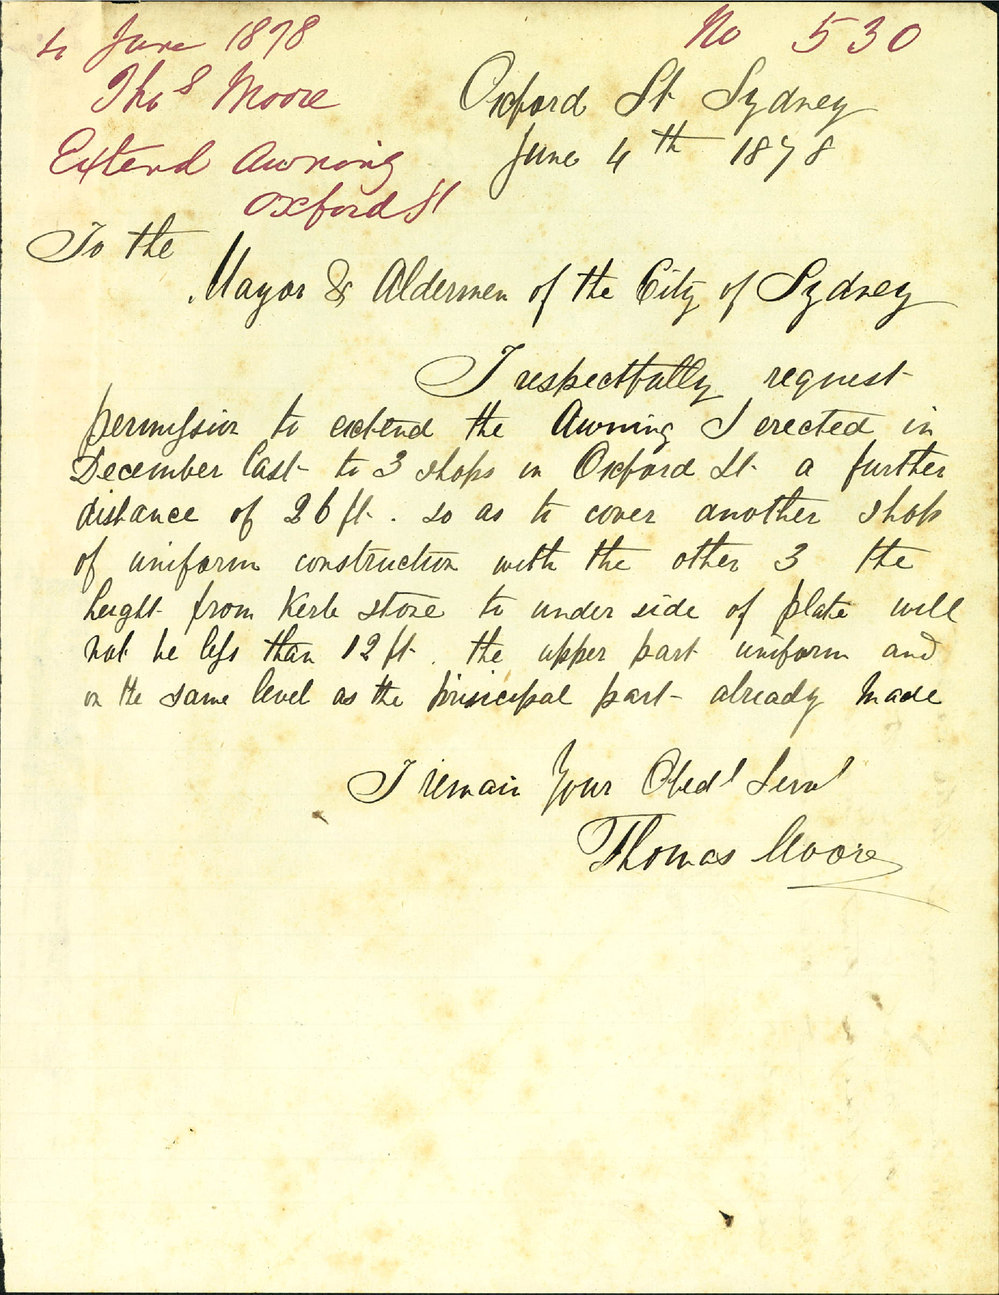 4 June 1878
No 530
Thos Moore
Extend Awning
Oxford St
Oxford St Sydney
June 4th 1878
To the
Mayor & Aldermen of the City of Sydney
I respectfully request
permission to extend the Awning I erected in
December last to 3 shops in Oxford St. a further
distance of 26 ft. so as to cover another shop
of uniform construction with the other 3 the
height from Kerb stone to under side of plate will
not be less than 12 ft. the upper part uniform and
on the same level as the principal part already made
I remain Your Obedt Servt
Thomas Moore